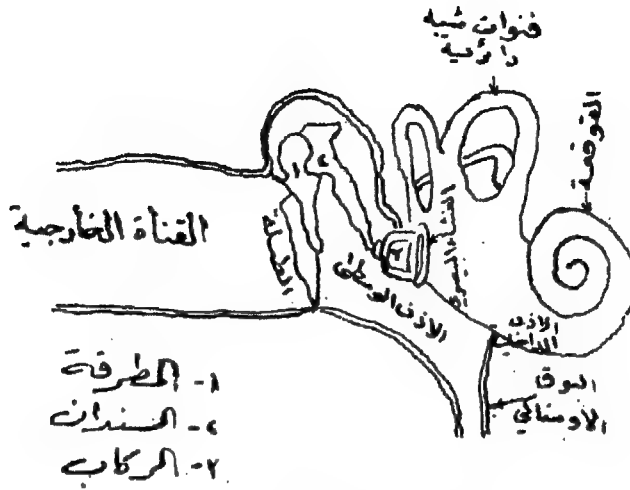 قنوات شبه
دائرية
القوقعة
القناة الخارجية
الطبلة
١
٢
٣
الأذن الوسطى
الاذن
الداخلية
البوق
الاوستاكي
١- المطرقة
٢- السندان
٣- الركاب